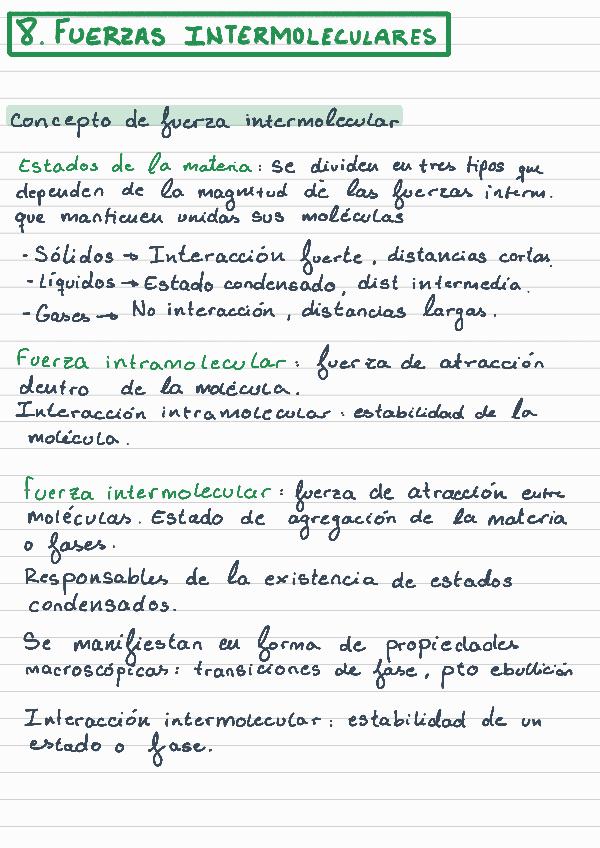 8. FUERZAS INTERMOLECULARES
Concepto de fuerza intermolecular
Estados de la materia: se dividen en tres tipos que
dependen de la magnitud de las fuerzas interm.
que mantienen unidas sus moléculas
- Sólidos → Interacción fuerte, distancias cortas.
- Líquidos → Estado condensado, dist intermedia.
- Gases → No interacción, distancias largas.
Fuerza intramolecular: fuerza de atracción
dentro de la molécula.
Interacción intramolecular: estabilidad de la
molécula.
Fuerza intermolecular: fuerza de atracción entre
moléculas. Estado de agregación de la materia
o fases.
Responsables de la existencia de estados
condensados.
Se manifiestan en forma de propiedades
macroscópicas: transiciones de fase, pto ebullición
Interacción intermolecular: estabilidad de un
estado o fase.